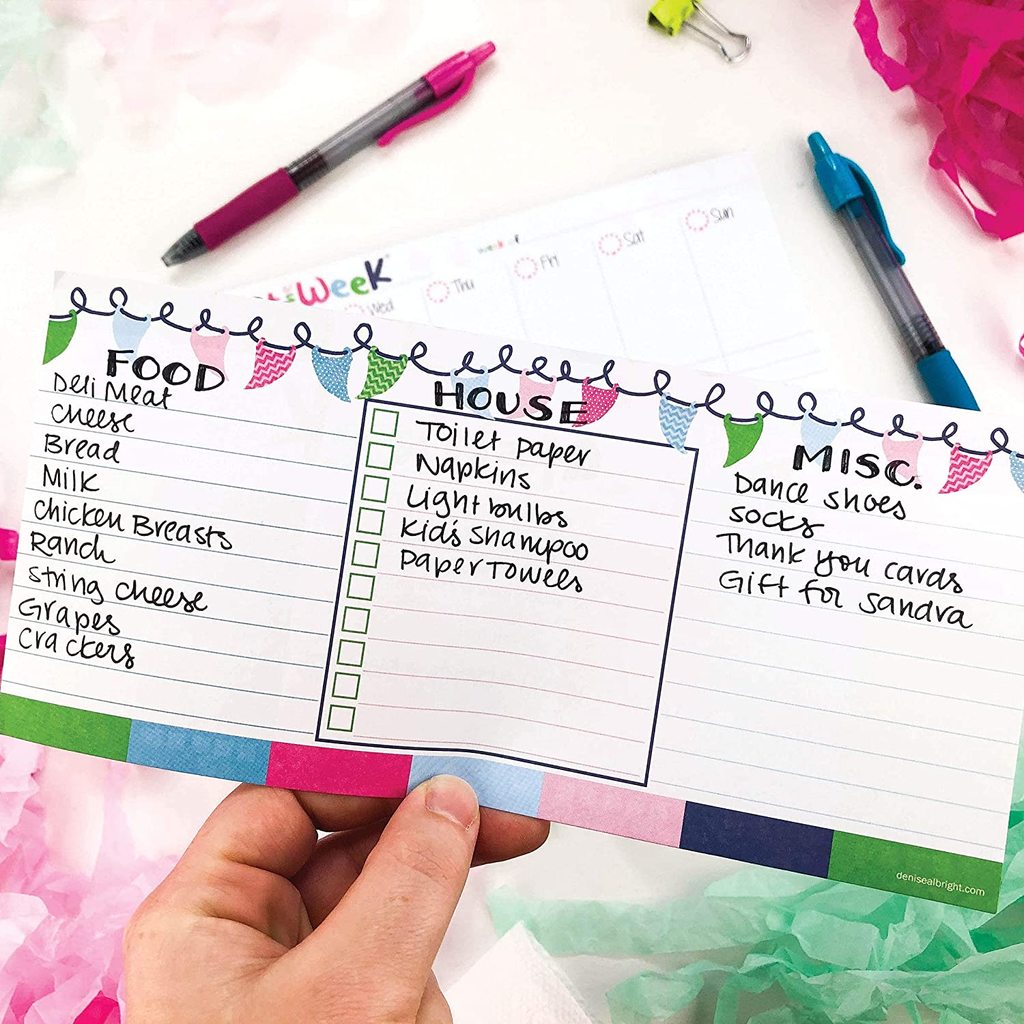 week of
WeeK
Wed
Thu
Fri
Sat
Sun
FOOD
Deli Meat
Cheese
Bread
Milk
Chicken Breasts
Ranch
String Cheese
Grapes
Crackers
HOUSE
Toilet paper
Napkins
Light bulbs
Kid's Shampoo
Paper Towels
MISC.
Dance shoes
socks
Thank you cards
Gift for Sandra
denisealbright.com